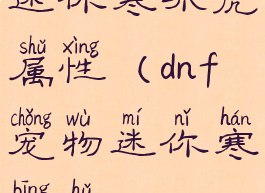 迷你寒冰虎
shǔ xìng
属性（dnf
chǒng wù mí nǐ hán
宠物迷你寒
bīng hǔ